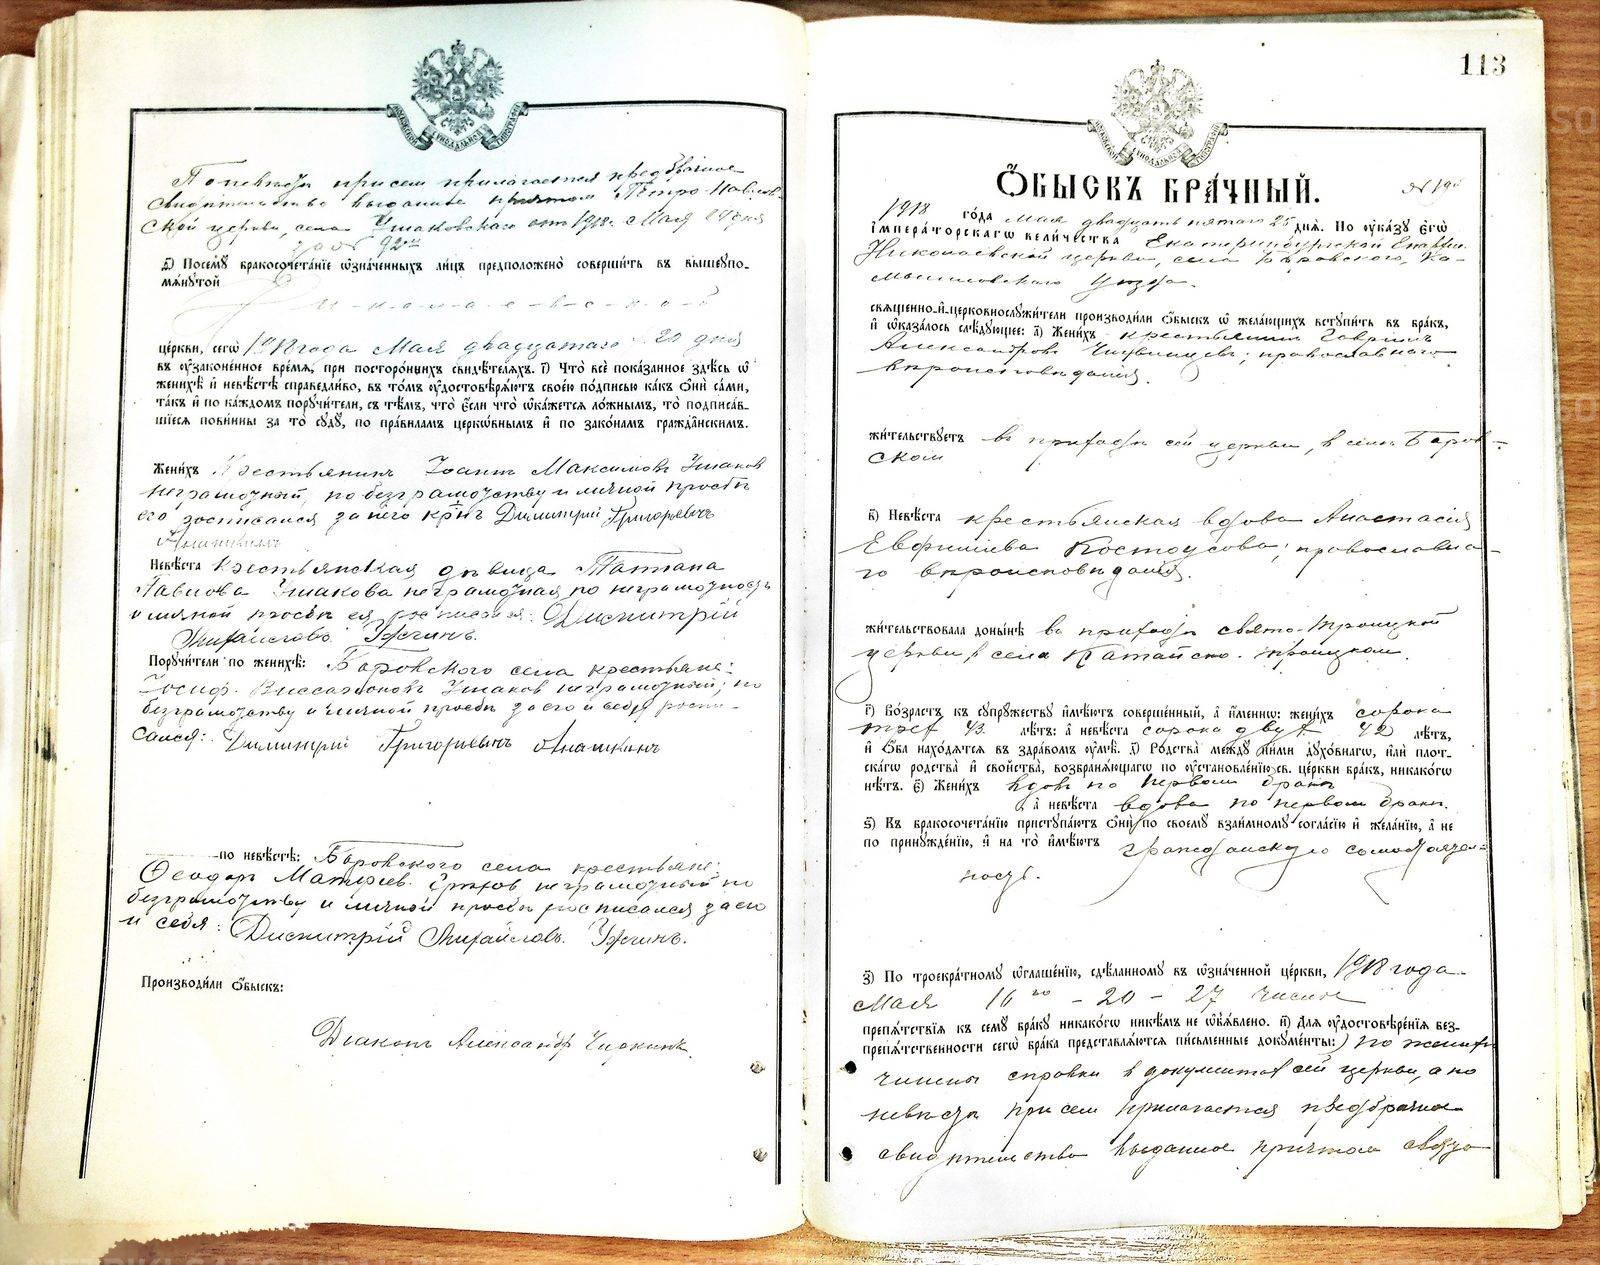 По невѣстѣ при семъ прилагается предбрачное
свидѣтельство выданное причтомъ Петро-Павлов-
ской церкви, села Ушаковскаго отъ 1918 г. Мая 19 дня
за № 92
в) Посемꙋ бракосочетанїе ѡзначенныхъ лицъ предположено совершить въ вышеꙋпо-
мѧнꙋтой
Н-и-к-о-л-а-е-в-с-к-о-й
церкви, сегѡ 1918 года Мая двадцатаго 20 дня
въ ꙋзаконенное время, при постороннихъ свидѣтеляхъ. г) Что всё показанное здѣсь ѡ
женихѣ и невѣстѣ справедливо, въ томъ ꙋдостовѣряютъ своею подписью какъ ѻни сами,
такъ и по каждомъ порꙋчители, съ тѣмъ, что если что ѡкажется ложнымъ, то подписав-
шїеся повинны за то сꙋдꙋ, по правиламъ церкѡвнымъ и по законамъ гражданскимъ.
Женихъ Крестьянинъ Іоаннъ Максимовъ Ушаковъ
неграмотный, по безграмотству и личной просьбѣ
его росписался за него кр-нъ Димитрій Григорьевичъ
Анашкинъ
Невѣста Крестьянская дѣвица Татіана
Павлова Ушакова неграмотная по неграмотности
и личной просьбѣ ея росписался: Дисмитрій
Михайловъ Ужгинъ.
Порꙋчители по женихѣ: Боровского села крестьяне:
Іосифъ Виссаріоновъ Ушаковъ неграмотный; по
безграмотству и личной просьбѣ за его и себя роспи-
сался: Димитрій Григорьевичъ Анашкинъ
—по невѣстѣ: Боровского села крестьяне:
Ѳеодоръ Матвѣевъ неграмотный по
безграмотству и личной просьбѣ росписался за его
и себя: Дисмитрій Михайловъ. Ужгинъ.
Производили ѻбыскъ:
Діаконъ Александръ Чиркинъ
113
ѺБЫСКЪ БРАЧНЫЙ.
№ 19й
1918 года Мая двадцать пятаго 25 дня. По ꙋказꙋ Егѡ
Императорскагѡ Величества Екатеринбургской Епархіи
Николаевской церкви, села Боровского, Ка-
мышловскаго Уѣзда.
священно-и-церковнослꙋжители производили ѻбыскъ ѡ желающихъ встꙋпить въ бракъ,
и ѡказалось слѣдꙋющее: а) Женихъ крестьянинъ Гавріилъ
Александровъ православнаго
вѣроисповѣданія.
жительствꙋетъ въ приходѣ сей церкви, въ селѣ Боров-
скомъ
б) Невѣста крестьянская вдова Анастасія
Евфиміева Костоусова; православна-
го вѣроисповѣданія.
жительствовала донынѣ въ приходѣ Свято-Троицкой
церкви, въ селѣ Катайско-Троицкомъ.
г) Возрастъ къ сꙋпрꙋжествꙋ имѣютъ совершенный, а именно: женихъ сорока
трехъ 43 лѣтъ: а невѣста сорока двухъ 42 лѣтъ,
и ѻба находятся въ здравомъ ꙋмѣ. д) Родства междꙋ ними дꙋховнагѡ, или плот-
скагѡ родства и свойства, возбраняющагѡ по ꙋстановленїю св. церкви бракъ, никакогѡ
нѣтъ. е) Женихъ вдовъ по первомъ бракѣ
а невѣста вдова по первомъ бракѣ.
ѕ) Къ бракосочетанїю пристꙋпаютъ ѻни по своемꙋ взаимномꙋ согласїю и желанїю, а не
по принꙋжденїю, и на то имѣютъ гражданскую самостоятель-
ность.
з) По троекратномꙋ ѡглашенїю, сдѣланномꙋ въ ѡзначенной церкви, 1918 года
Мая 16го – 20 – 27 числа
препятствїя къ семꙋ бракꙋ никакогѡ никѣмъ не ѡбъявлено. и) Для ꙋдостовѣренїя без-
препятственности сегѡ брака представляются письменные докꙋменты: По женихѣ
чинены справки въ документахъ сей церкви, а по
невѣстѣ при семъ прилагается предбрачное
свидѣтельство выданное причтомъ Свято